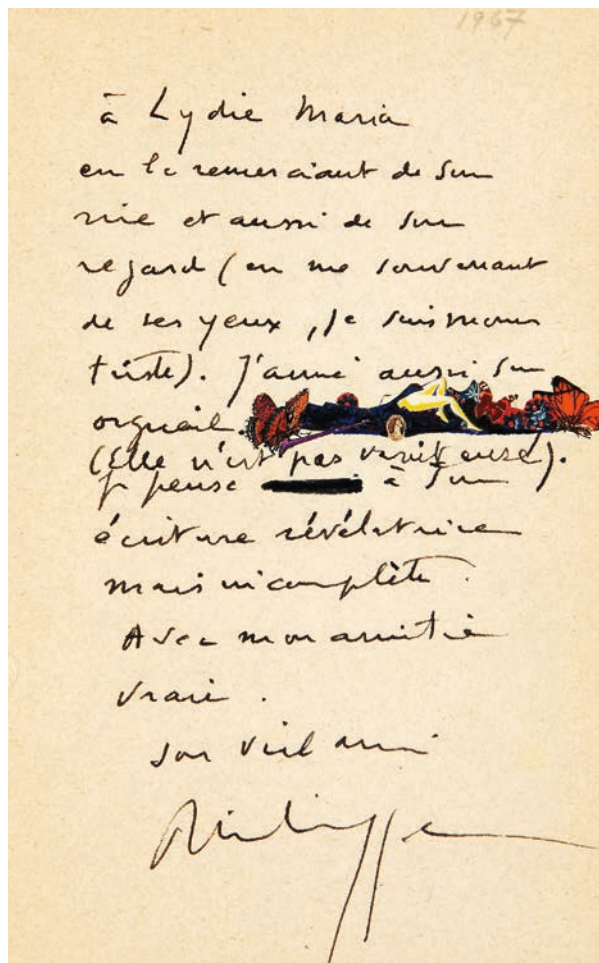 1967
à Lydie Maria
en la remerciant de son
rire et aussi de son
regard (en me souvenant
de ses yeux, je suis moins
triste). J'aime aussi son
orgueil.
(Elle n'est pas vaniteuse).
Je pense à son
écriture révélatrice
mais incomplète.
Avec mon amitié
vraie.
Son vieil ami
Philippe